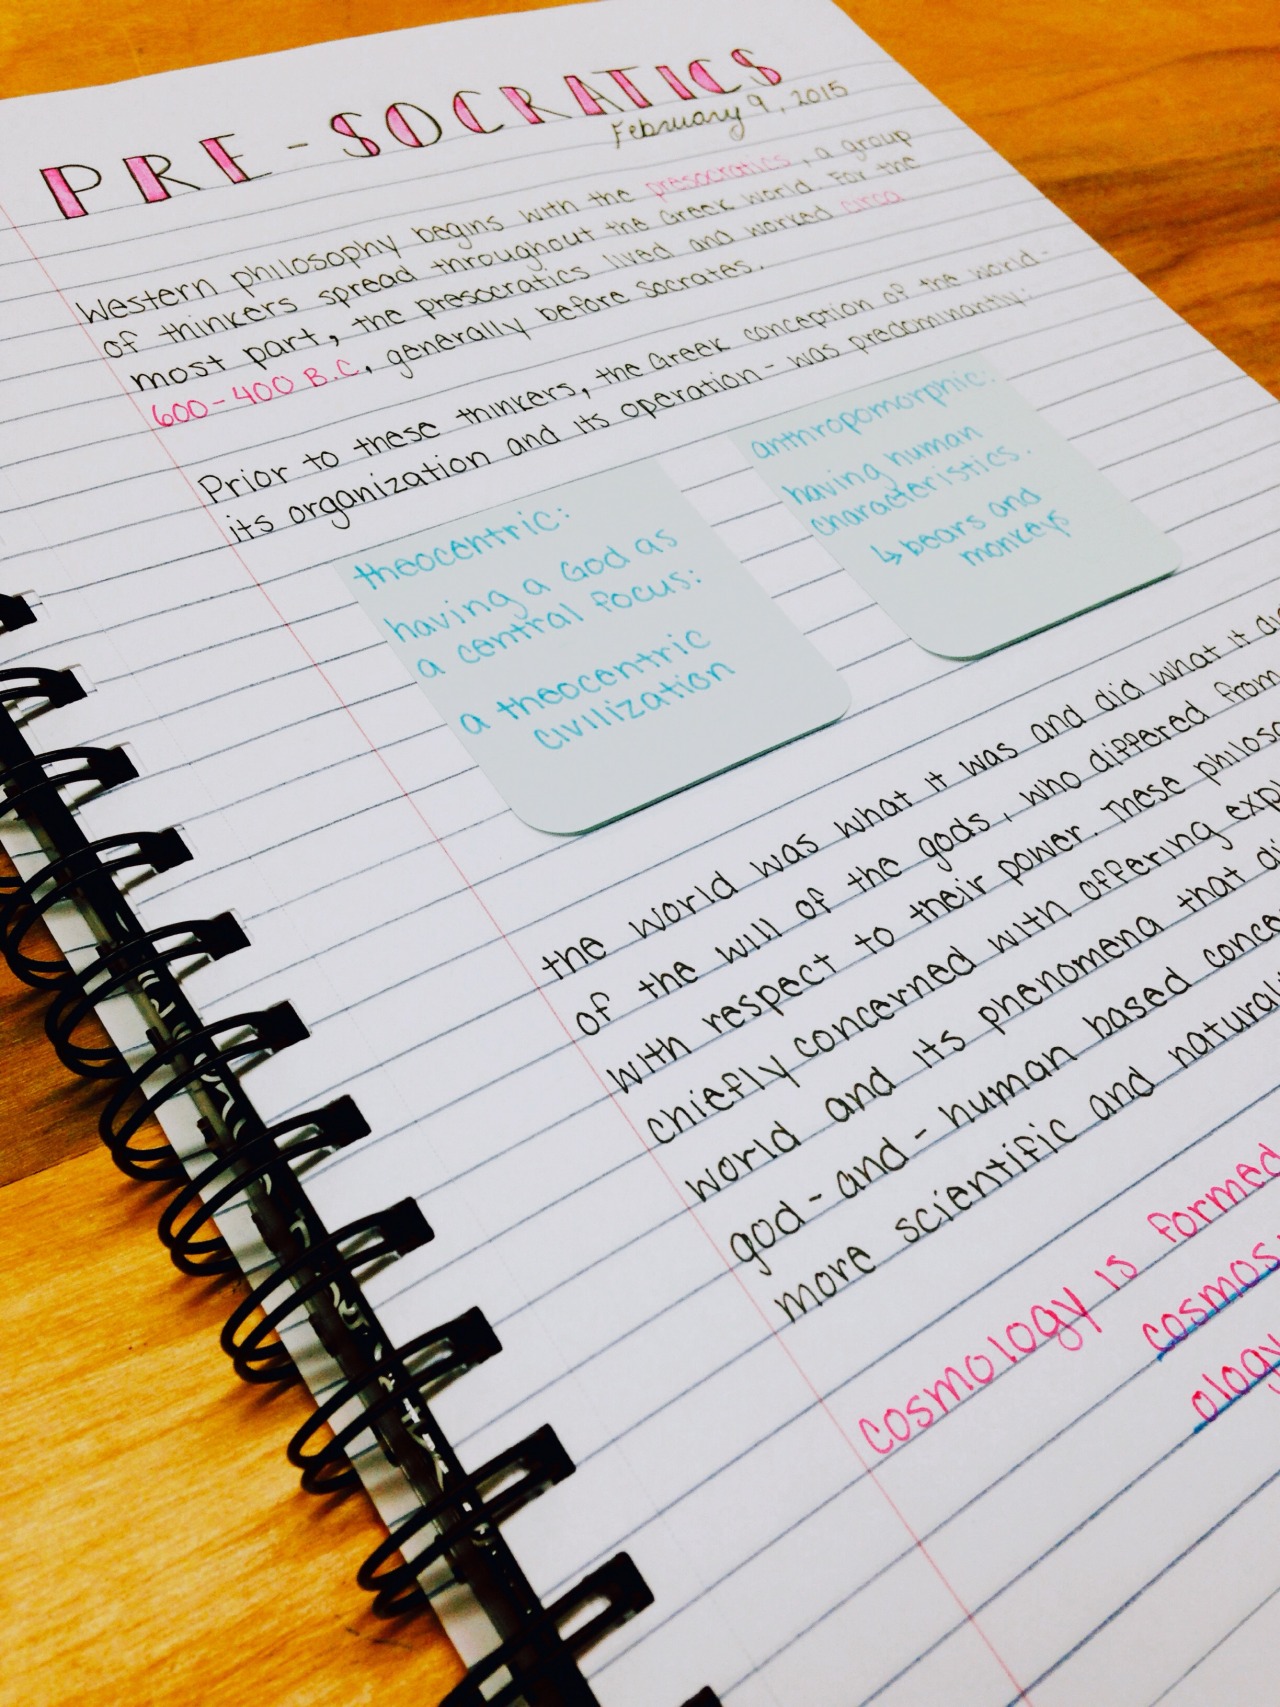 PRE-SOCRATICS
February 9, 2015
Western philosophy begins with the presocratics, a group
of thinkers spread throughout the Greek world. For the
most part, the presocratics lived and worked circa
600-400 B.C., generally before Socrates.
Prior to these thinkers, the Greek conception of the world-
its organization and its operation- was predominantly:
theocentric:
having a God as
a central focus:
a theocentric
civilization
anthropomorphic:
having human
characteristics.
↳ bears and
monkeys
the world was what it was and did what it
of the will of the gods, who differed from
with respect to their power. These
chiefly concerned with offering
world and its phenomena that
god-and-human based
more scientific and
cosmology is formed
cosmos
ology